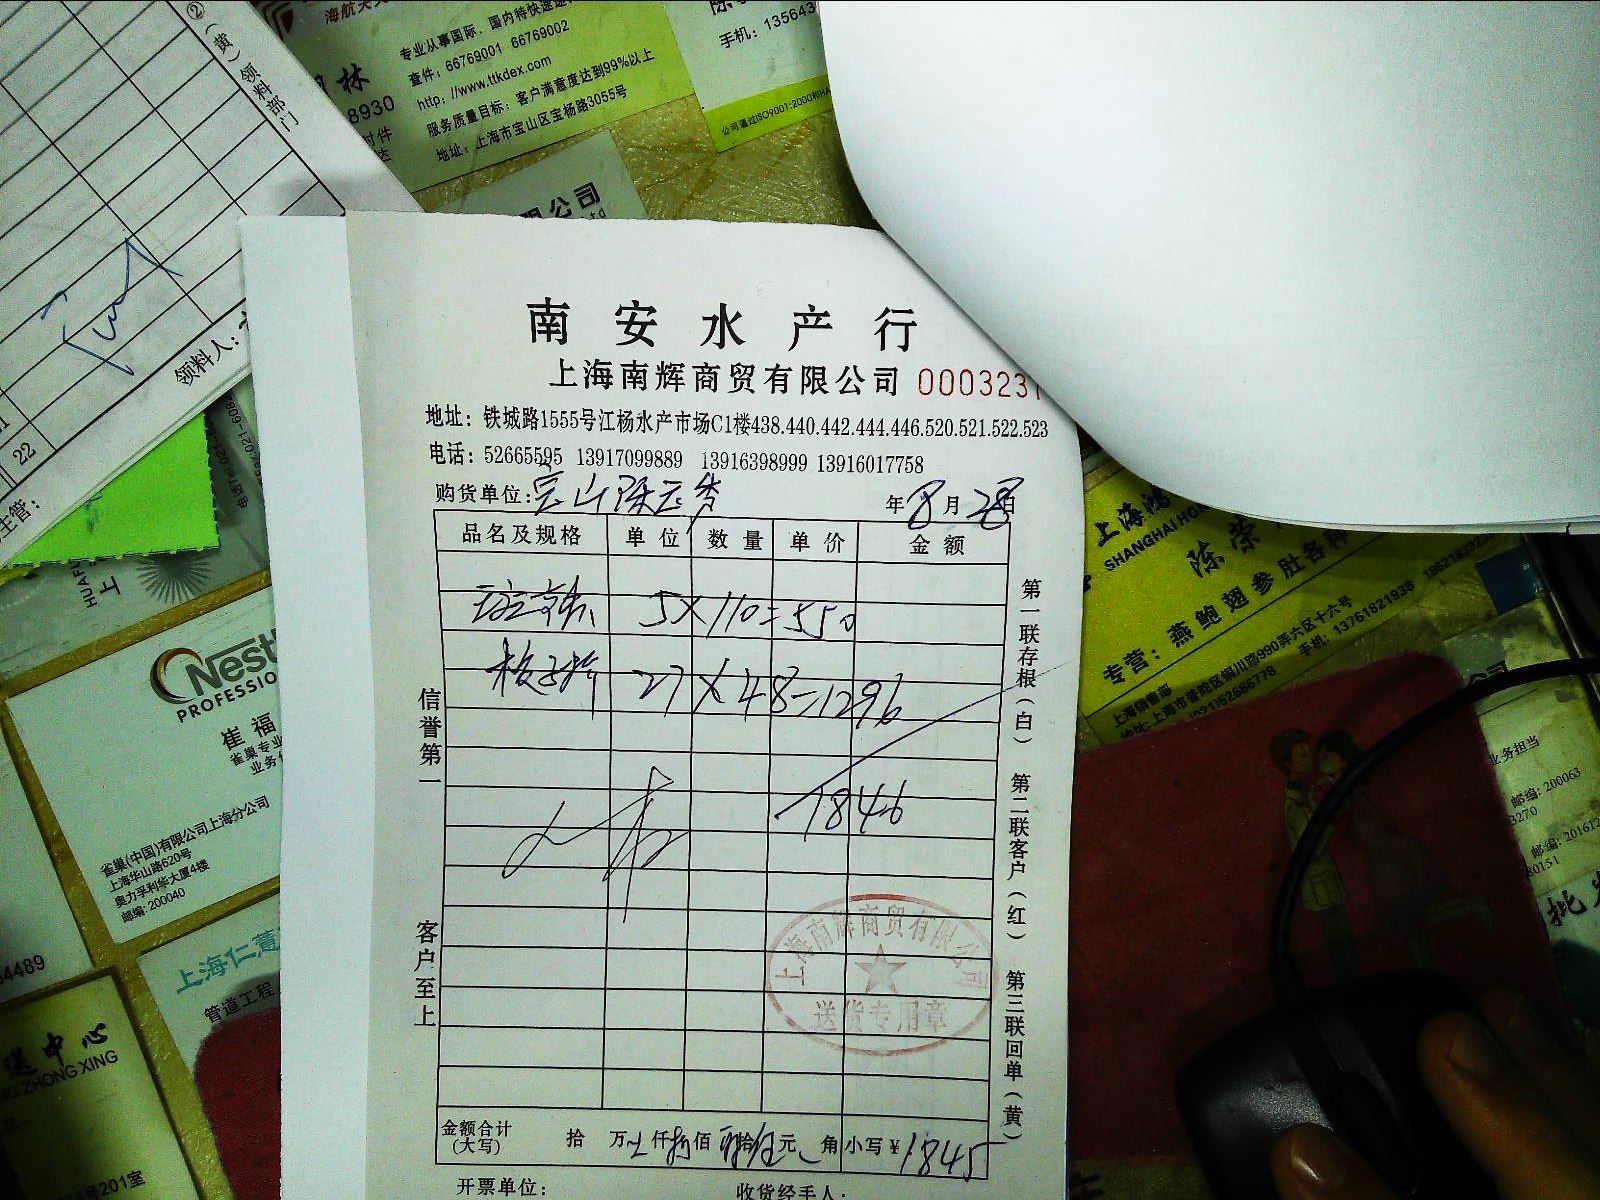 ②(黄)领料部门
领料人:
22
主管:
海航天天
专业从事国际、国内特快速递
查件: 66769001 66769002
http: //www.ttkdex.com
服务质量目标: 客户满意度达到99%以上
地址: 上海市宝山区宝杨路3055号
林
8930
手机: 135643
公司通过ISO9001:2000和HA
限公司
南安水产行
上海南辉商贸有限公司 0003231
地址: 铁城路1555号江杨水产市场C1楼438.440.442.444.446.520.521.522.523
电话: 52665595 13917099889 13916398999 13916017758
购货单位: 年8月28日
品名及规格 单位 数量 单价 金额
5×110=550
27×48=1296
1846
信誉第一
客户至上
第一联存根(白) 第二联客户(红) 第三联回单(黄)
上海南辉商贸有限公司
送货专用章
金额合计(大写) 拾 万 仟 佰 拾 元 角 小写¥1845
开票单位: 收货经手人:
Nest
PROFESSIO
崔福
雀巢专业
业务
雀巢(中国)有限公司上海分公司
上海华山路620号
奥力孚利华大厦4楼
邮编: 200040
4489
上海仁薏
管道工程
送中心
NG ZHONG XING
号201室
上海鸿
SHANGHAI HO
陈荣
专营: 燕鲍翅参肚各种
上海销售部
地址: 上海市普陀区铜川路990弄六区十六号
(021)52665778 手机: 13761821938
业务担当
邮编: 200063
3270
邮编: 201612
80151
批发